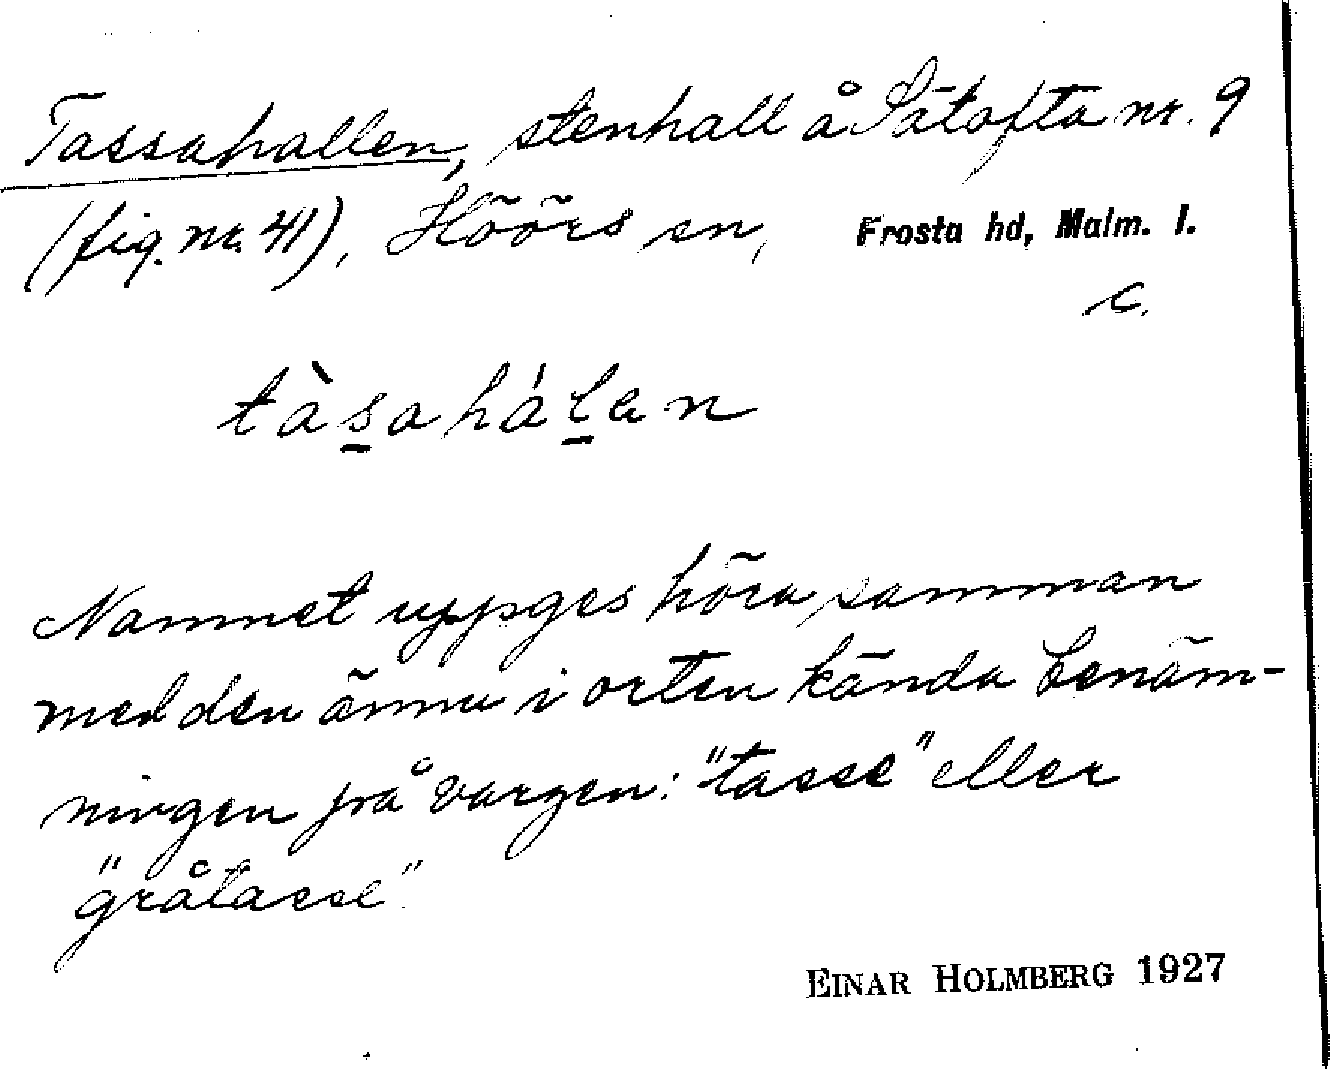 Tassahallen, stenhall å Sätofta nr. 9
(fig. nr. 41), Höörs sn, Frosta hd, Malm. l.
c.
tàsahálen
Namnet uppges höra samman
med den ännu i orten kända benäm-
ningen på vargen: "tasse" eller
"gråtasse".
EINAR HOLMBERG 1927